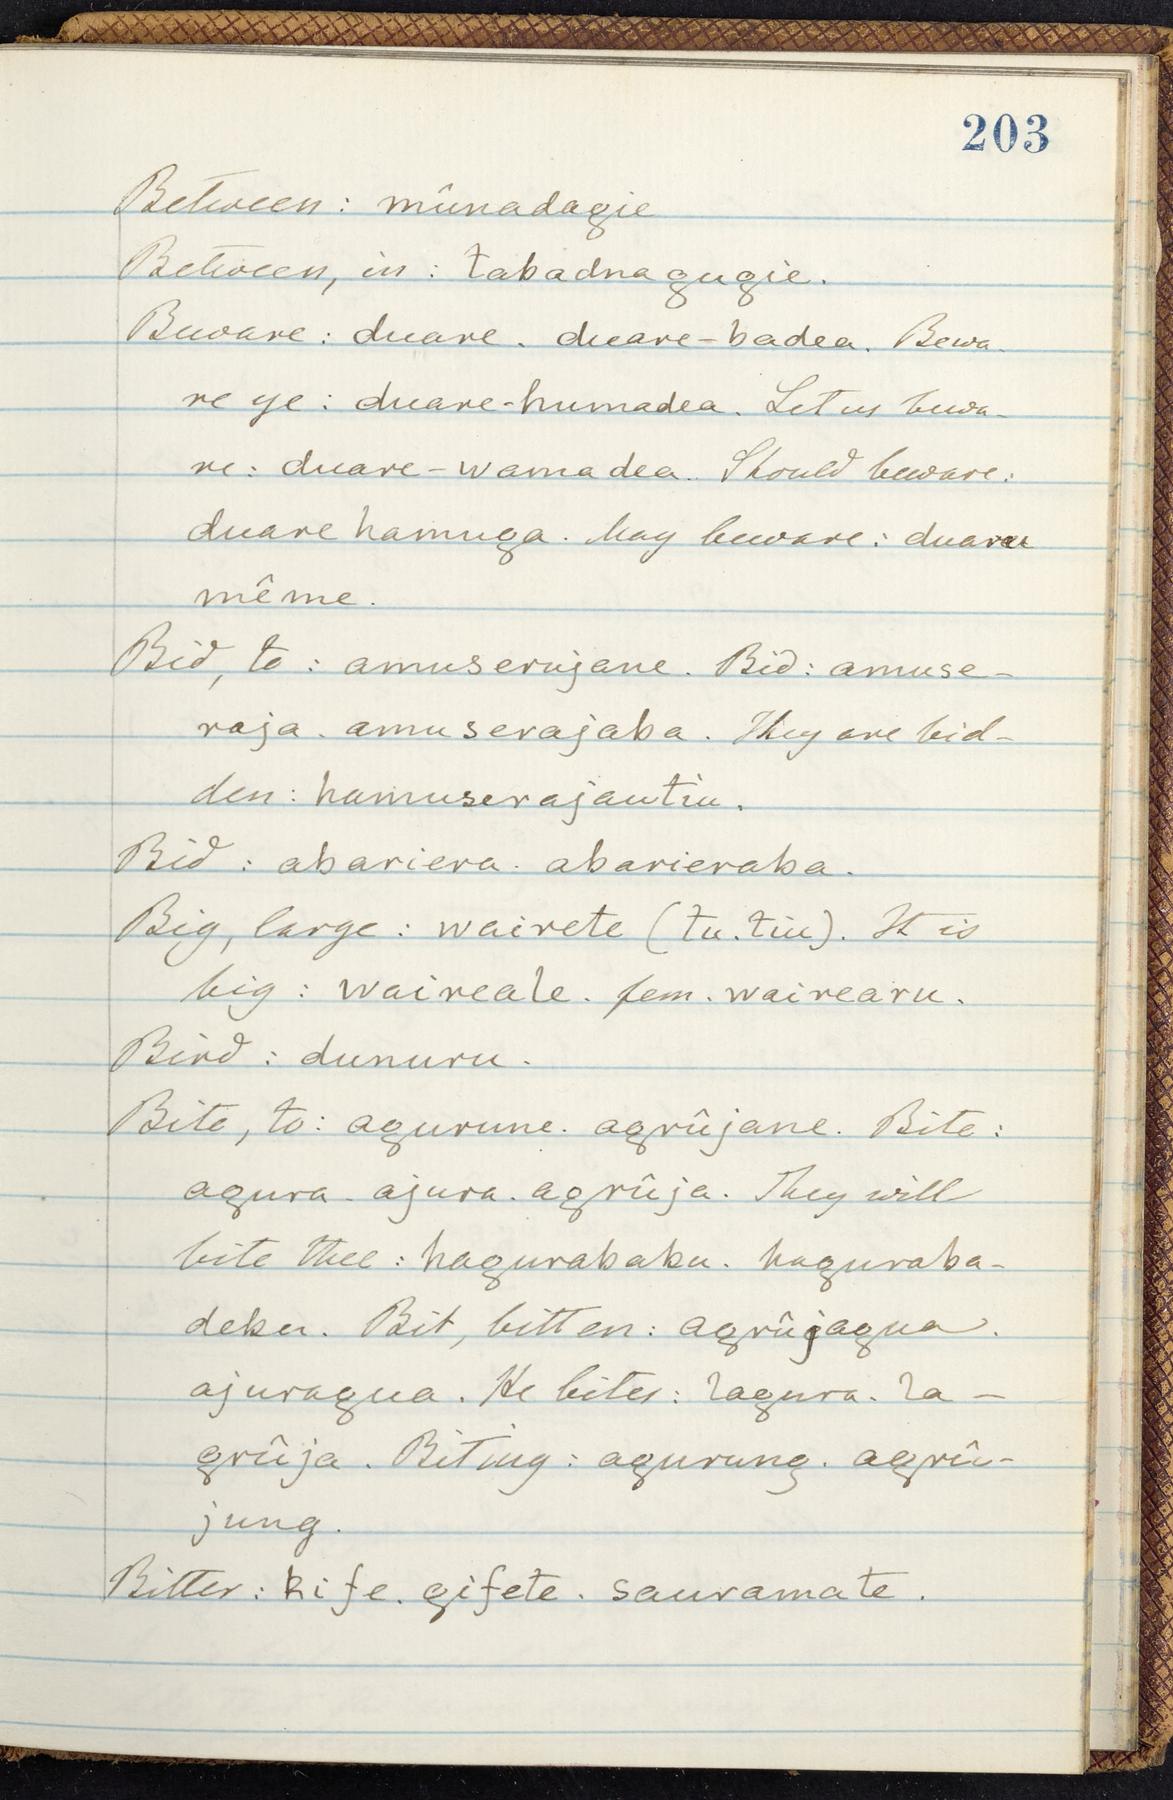 203
Between: mûnadagie
Between, in: tabadnagugie.
Beware: duare. duare-badea. Bewa-
re ye: duare-humadea. Let us bewa-
re: duare-wamadea. Should beware:
duare hamuga. May beware: duaree
même.
Bid, to: amuserujane. Bid: amuse-
raja. amuserajaba. They are bid-
den: hamuserajautiu.
Bid: abariera. abarieraba.
Big, large: wairete (tu. tiu). It is
big: waireale. fem. wairearu.
Bird: dunuru.
Bite, to: agurune. agrûjane. Bite:
agura. ajura. agrûja. They will
bite thee: hagurababu. haguraba-
debu. Bit, bitten: agrûjagua.
ajuragua. He bites: lagura. la-
grûja. Biting: agurung. agrû-
jung.
Bitter: kife. gifete. sauramate.